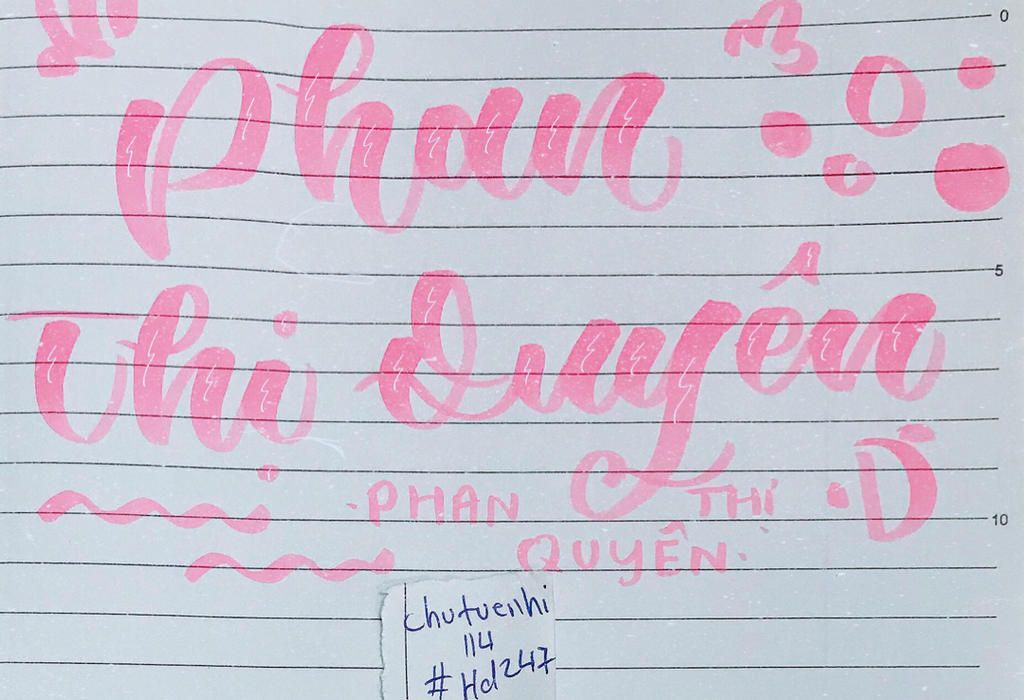 0
Phan
5
Thị Quyên
·PHAN THỊ
10
QUYÊN·
chutuenhi
114
#Hd247